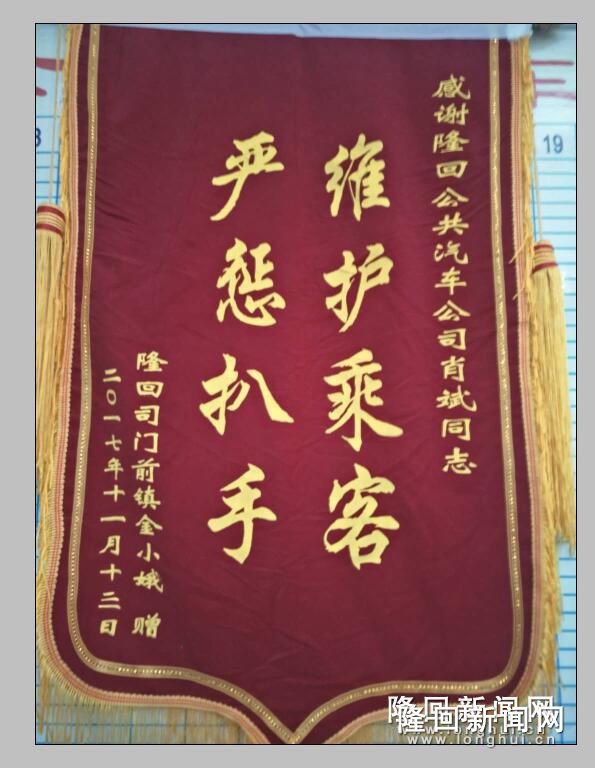 感谢隆回公共汽车公司肖斌同志
维护乘客
严惩扒手
隆回司门前镇金小娥 赠
二〇一七年十一月十三日
19
隆回新闻网
隆回新闻网
www.longhui.cn